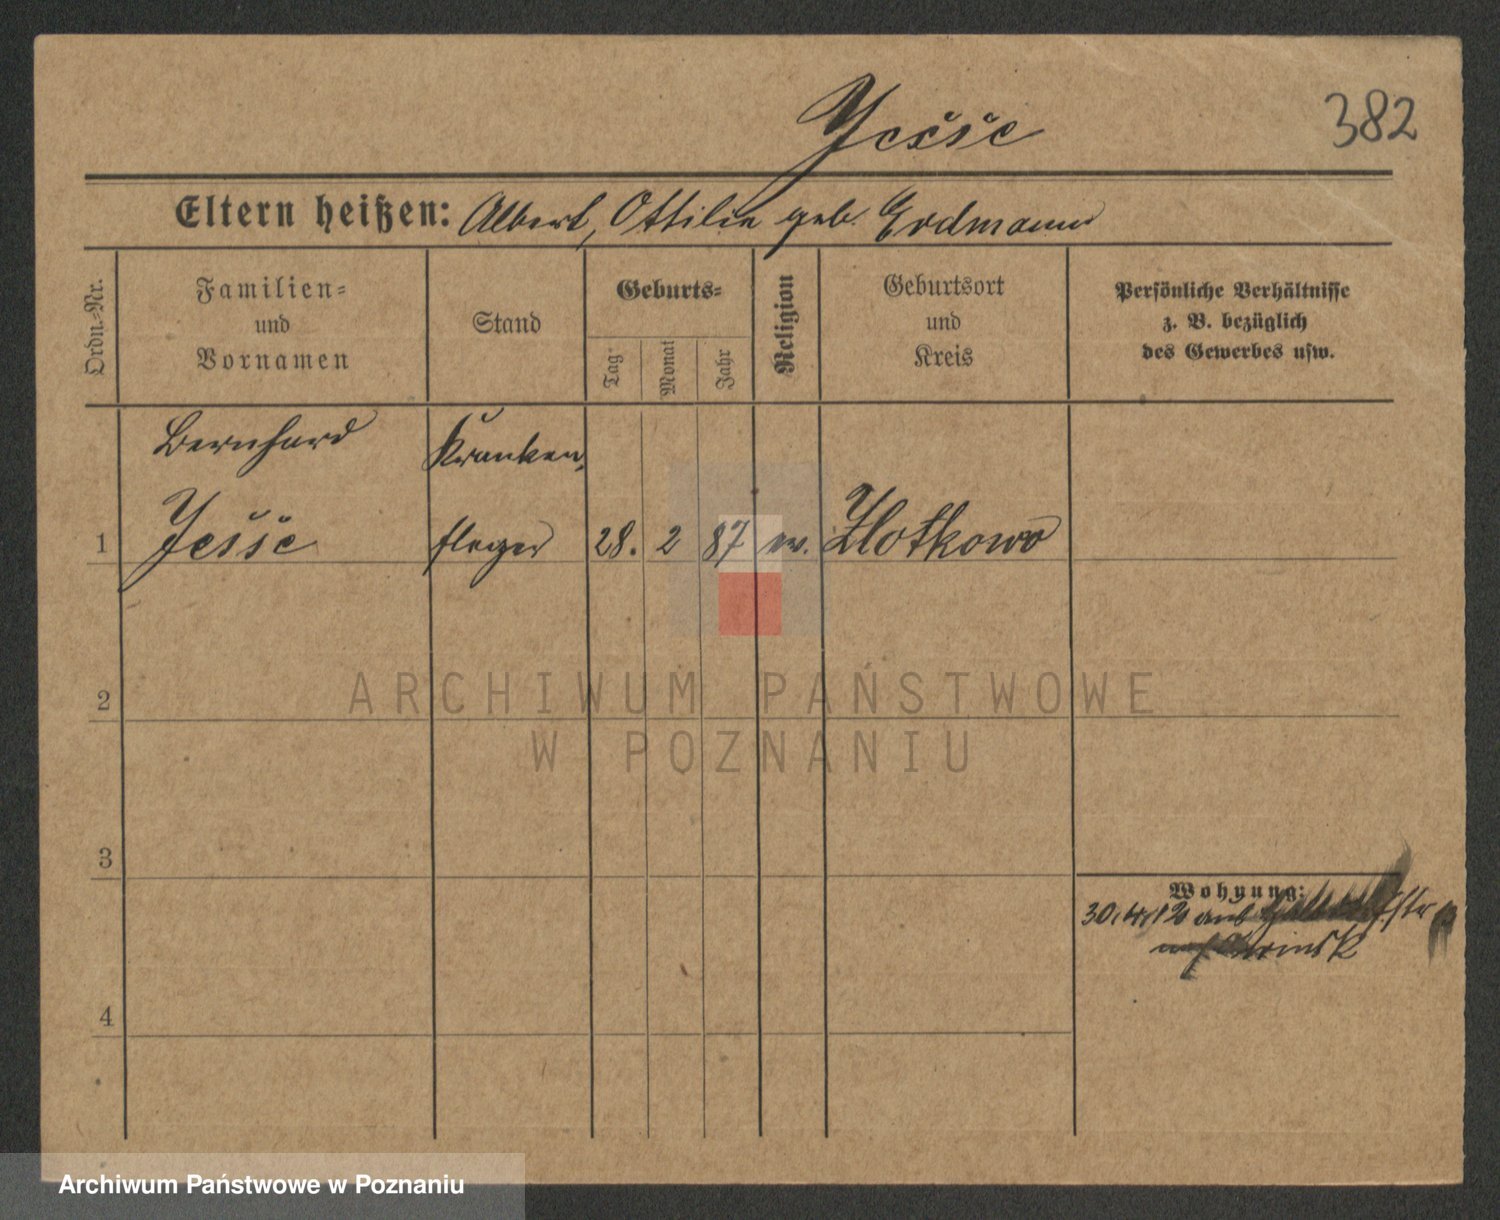 382
Jesse
Eltern heißen: Albert, Ottilie geb. Erdmann
Ordn.-Nr.
Familien-
und
Vornamen
Stand
Geburts-
Tag
Monat
Jahr
Religion
Geburtsort
und
Kreis
Persönliche Verhältnisse
z. B. bezüglich
des Gewerbes usw.
Bernhard
Kranken
1 Jesse pfleger 28. 2 87 ev. Zlotkowo
2
3
4
Wohnung:
30.
ARCHIWUM PAŃSTWOWE
W POZNANIU
Archiwum Państwowe w Poznaniu